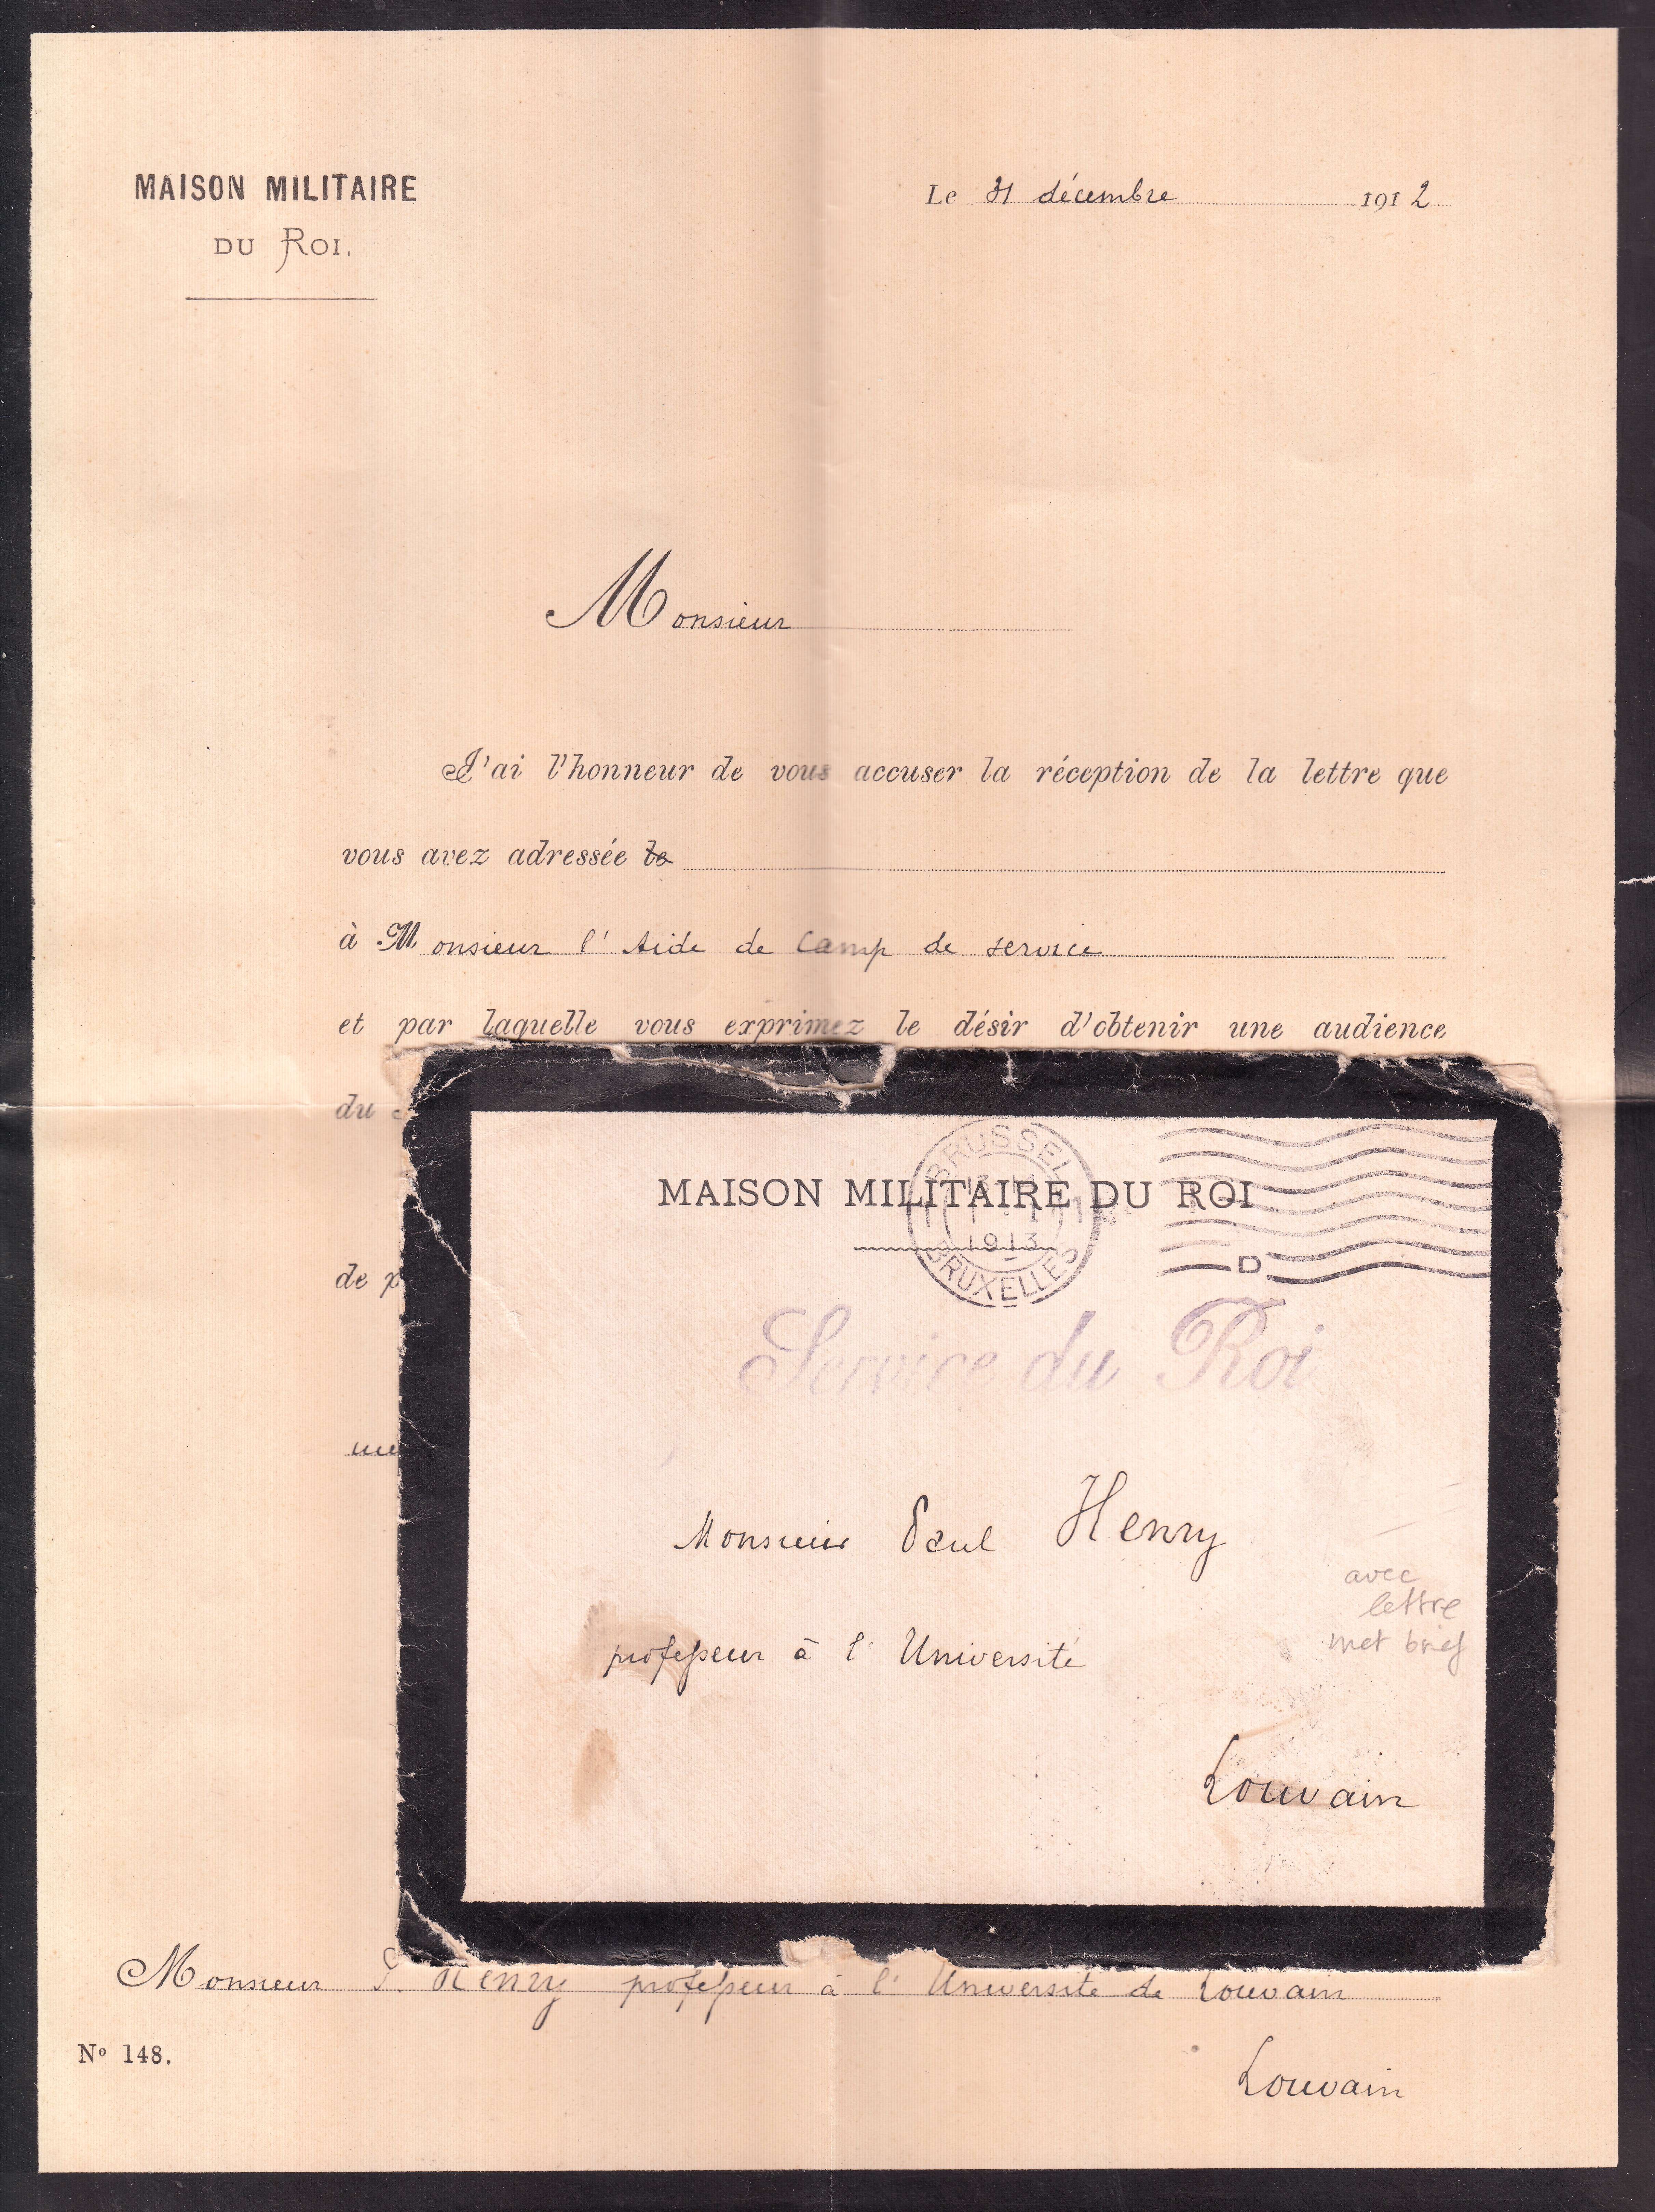 MAISON MILITAIRE
DU ROI.
Le 31 décembre 1912
Monsieur
J'ai l'honneur de vous accuser la réception de la lettre que
vous avez adressée le
à Monsieur l'Aide de Camp de service
et par laquelle vous exprimez le désir d'obtenir une audience
du
de p
BRUSSEL
1913
BRUXELLES
D
MAISON MILITAIRE DU ROI
Service du Roi
Monsieur Paul Henry
professeur à l'Université
Louvain
avec
lettre
met brief
Monsieur P. Henry professeur à l'Université de Louvain
Nº 148.
Louvain